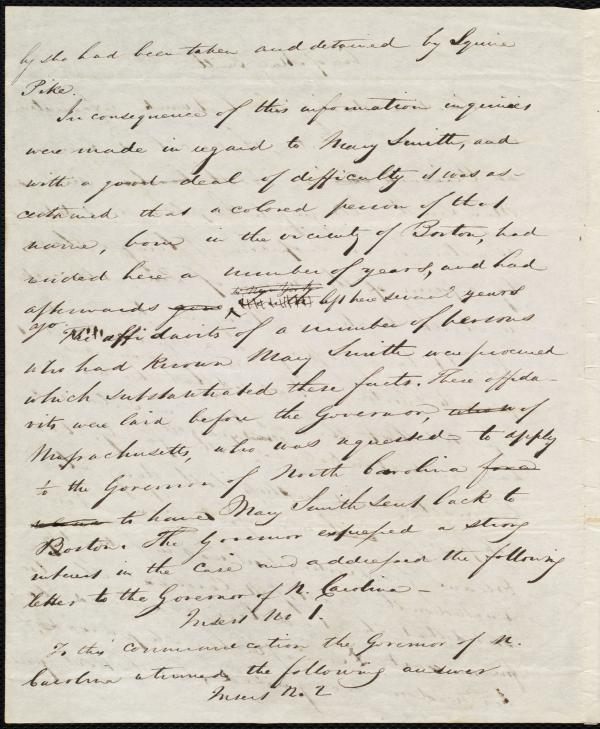 by sho had been taken and detained by Squire
Pike.
In consequence of this information inquiries
were made in regard to Mary Smith, and
with a good deal of difficulty it was as-
certained that a colored person of that
name, born in the vicinity of Boston, had
resided here a number of years, and had
to New York
afterwards gone left here several years
ago. The affidavits of a number of persons
who had known Mary Smith were procured
which substantiated these facts. These affida-
vits were laid before the Governor, of
Massachusetts, who was requested to apply
to the Governor of North Carolina
to have Mary Smith sent back to
Boston. The Governor expressed a strong
interest in the case and addressed the following
letter to the Governor of N. Carolina -
Insert No 1.
To this communication the Governor of N.
Carolina returned the following answer
Insert No. 2